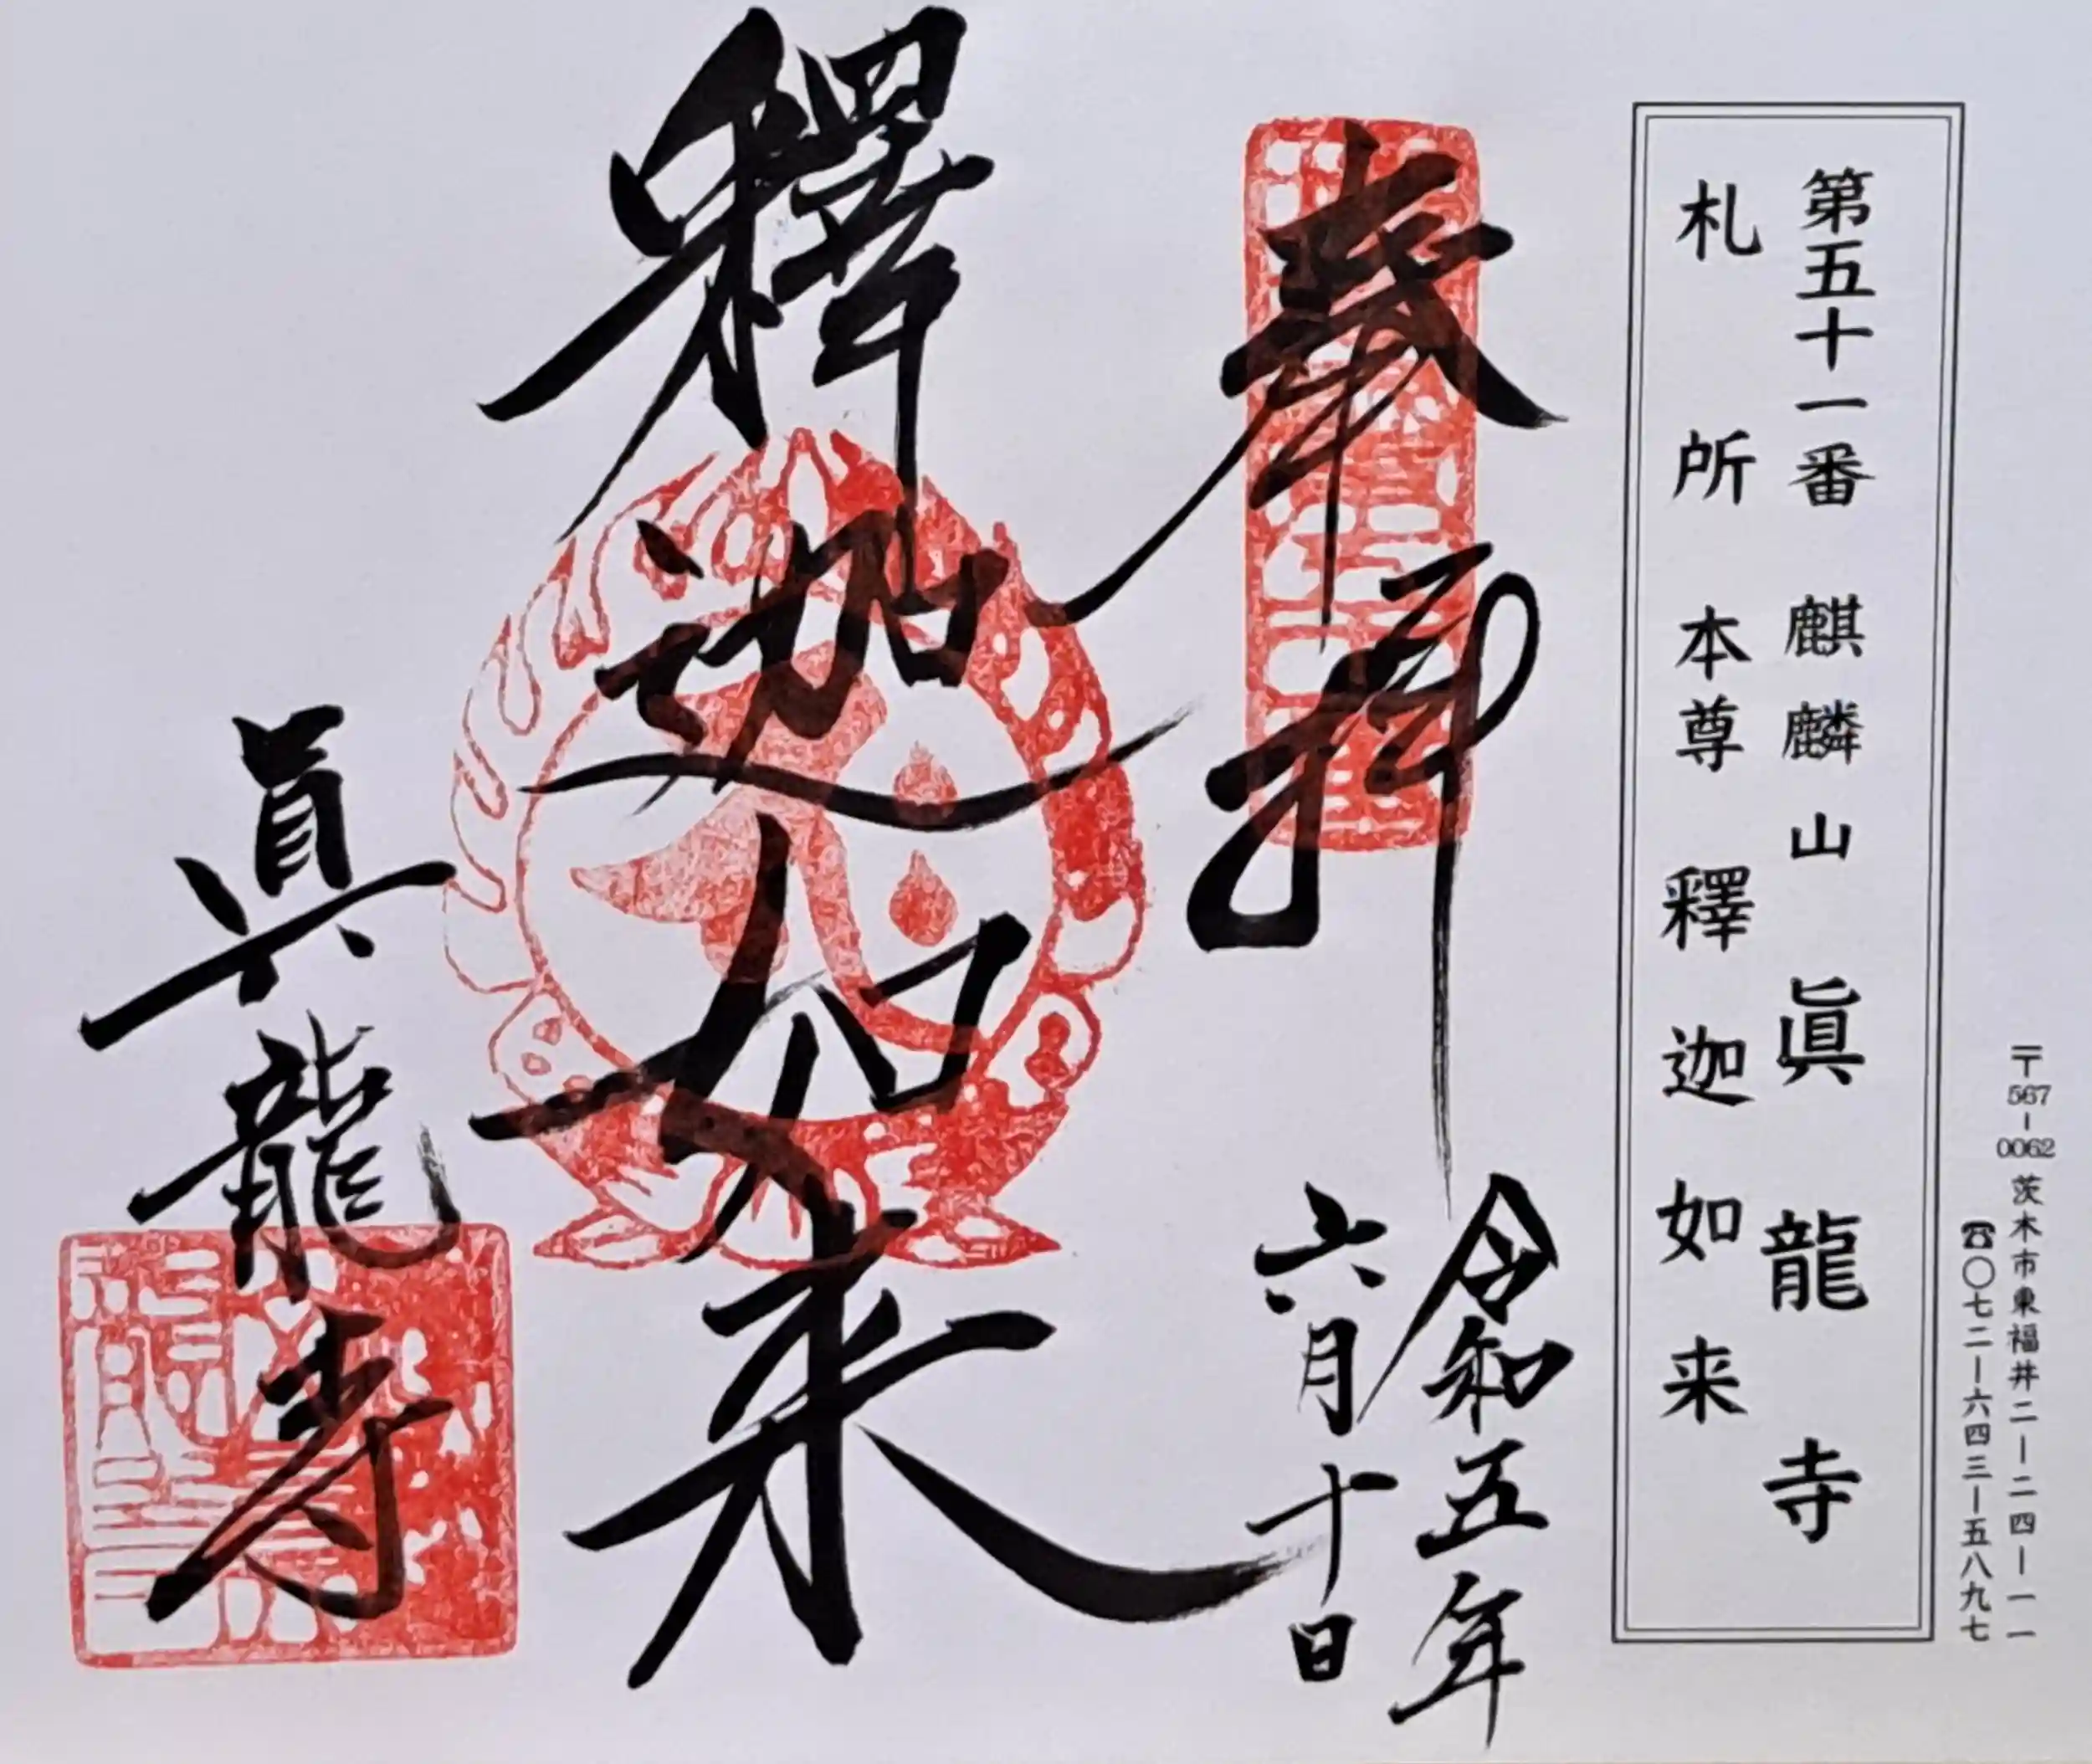 〒567-0062 茨木市東福井二ー二四ー一一
☎〇七二ー六四三ー五八九七
第五十一番 麒麟山 眞龍寺
札所本尊 釋迦如来
奉拝
令和五年
六月十日
釋迦如来
眞龍寺